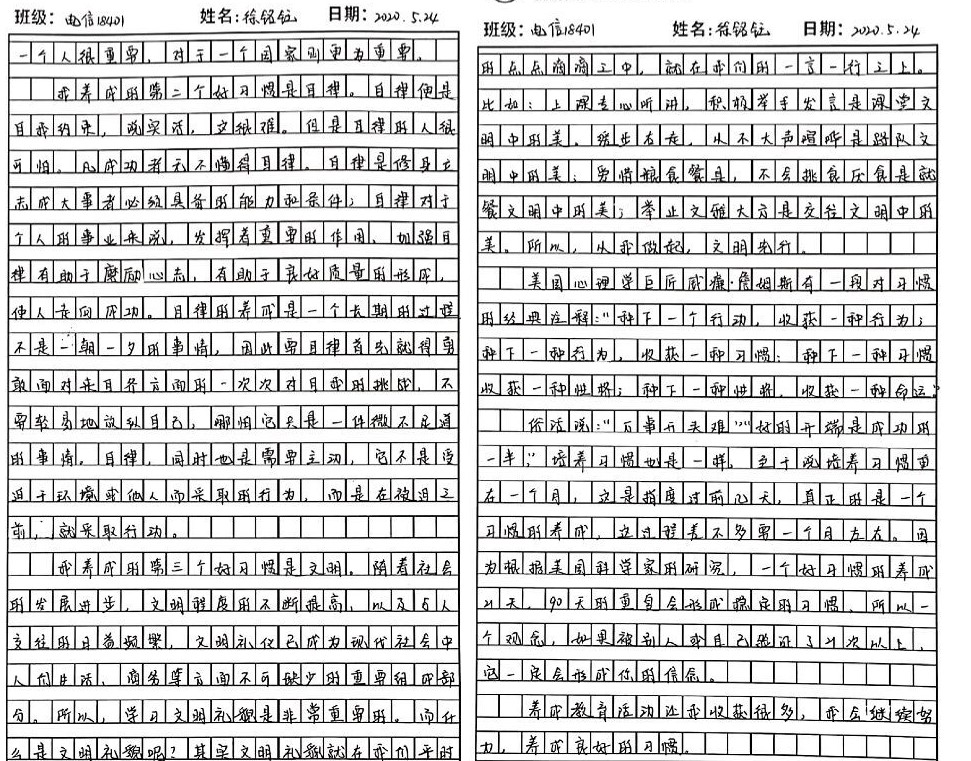 班级：电信18401 姓名：徐铭钰 日期：2020.5.24
一个人很重要，对于一个国家则更为重要。
我养成的第二个好习惯是自律。自律便是
自我约束，说实话，这很难。但是自律的人很
可怕。凡成功者无不懂得自律。自律是修身立
志成大事者必须具备的能力和条件；自律对于
个人的事业来说，发挥着重要的作用，加强自
律有助于磨励心志，有助于良好质量的形成，
使人走向成功。自律的养成是一个长期的过程
不是一朝一夕的事情，因此要自律首先就得勇
敢面对来自各方面的一次次对自我的挑战，不
要轻易地放纵自己，哪怕它只是一件微不足道
的事情。自律，同时也是需要主动，它不是受
迫于环境或他人而采取的行为，而是在被迫之
前，就采取行动。
我养成的第三个好习惯是文明。随着社会
的发展进步，文明程度的不断提高，以及与人
交往的日益频繁，文明礼仪已成为现代社会中
人们生活、商务等方面不可缺少的重要组成部
分。所以，学习文明礼貌是非常重要的。而什
么是文明礼貌呢？其实文明礼貌就在我们平时
班级：电信18401 姓名：徐铭钰 日期：2020.5.24
的点点滴滴之中，就在我们的一言一行之上。
比如：上课专心听讲，积极举手发言是课堂文
明中的美。缓步右走，从不大声喧哗是路队文
明中的美；爱惜粮食餐具，不会挑食厌食是就
餐文明中的美；举止文雅大方是交往文明中的
美。所以，从我做起，文明先行。
美国心理学巨匠威廉·詹姆斯有一段对习惯
的经典注释："种下一个行动，收获一种行为；
种下一种行为，收获一种习惯；种下一种习惯
收获一种性格；种下一种性格，收获一种命运"
俗话说："万事开头难""好的开端是成功的
一半"，培养习惯也是一样。至于说培养习惯重
在一个月，这是指度过前几天，真正的是一个
习惯的养成，这过程差不多要一个月左右。因
为根据美国科学家的研究，一个好习惯的养成
21天，90天的重复会形成稳定的习惯、所以一
个观念，如果被别人或自己验证了21次以上，
它一定会形成你的信念。
养成教育活动让我收获很多，我会继续努
力，养成良好的习惯。